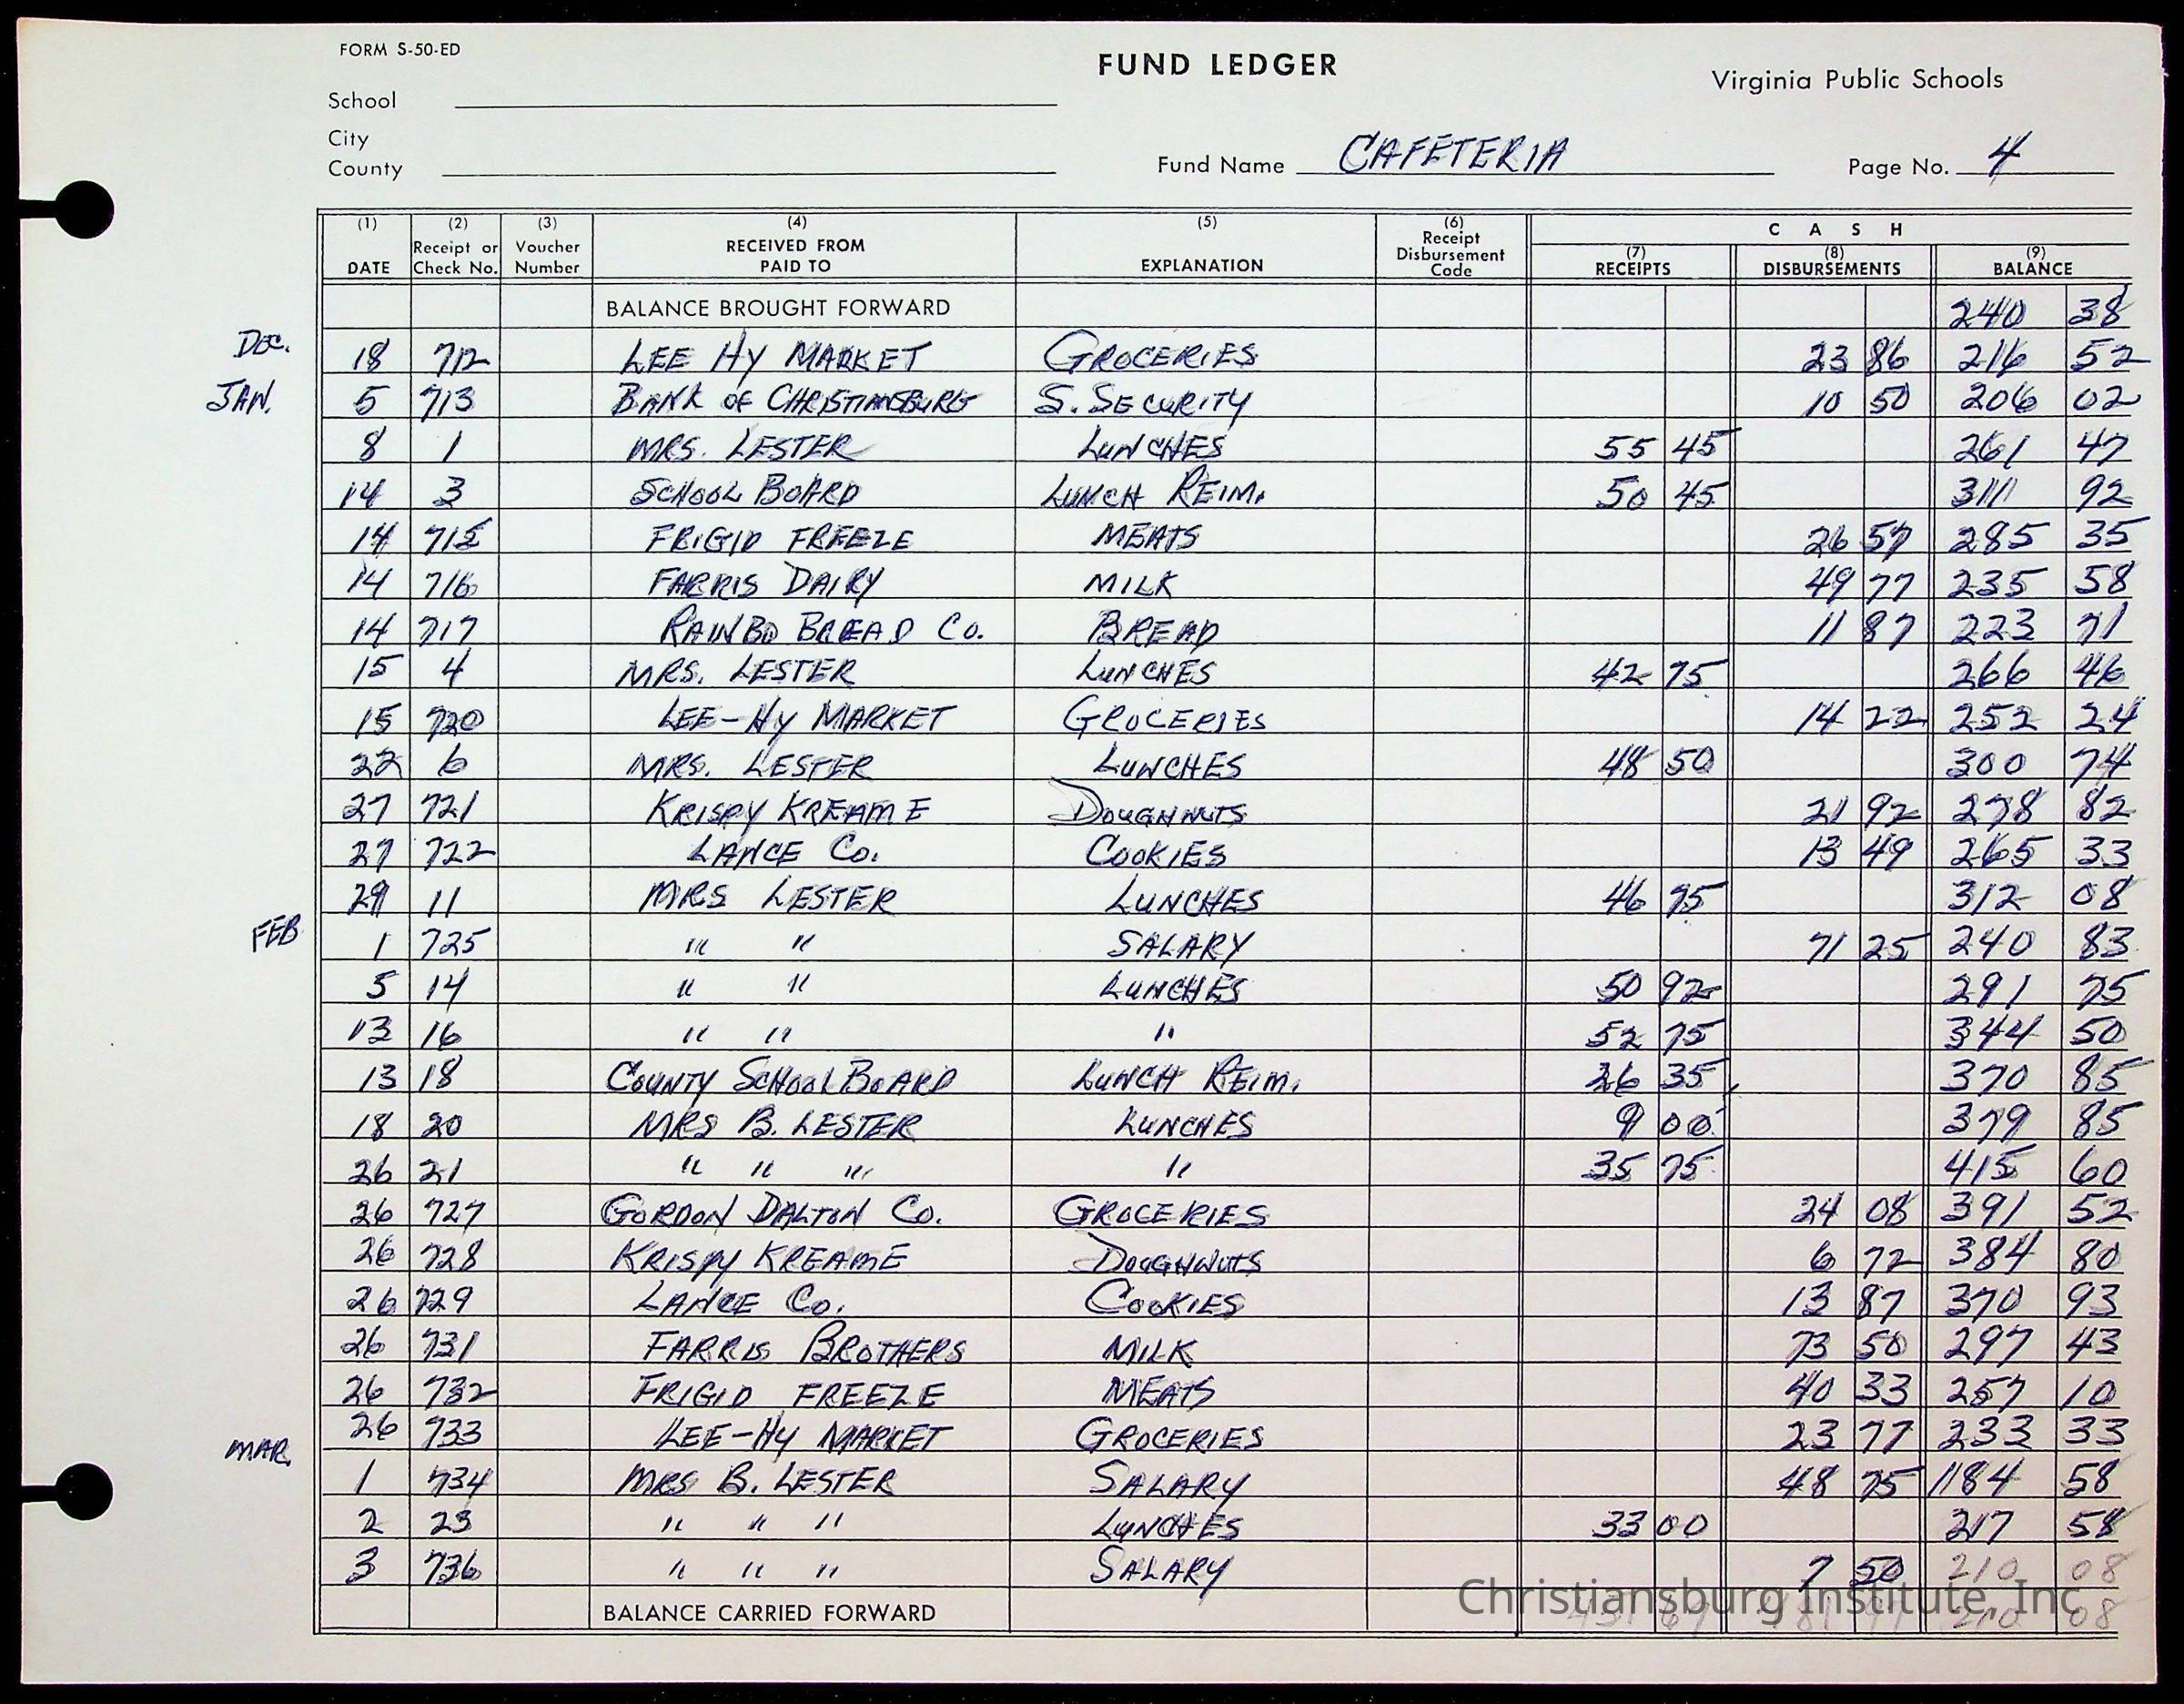 FORM S-50-ED
FUND LEDGER
Virginia Public Schools
School
City
County
Fund Name CAFETERIA
Page No. 4
(1) DATE (2) Receipt or Check No. (3) Voucher Number (4) RECEIVED FROM PAID TO (5) EXPLANATION (6) Receipt Disbursement Code CASH (7) RECEIPTS (8) DISBURSEMENTS (9) BALANCE
BALANCE BROUGHT FORWARD 240 38
DEC. 18 712 LEE HY MARKET GROCERIES 23 86 216 52
JAN. 5 713 BANK OF CHRISTIANSBURG S. SECURITY 10 50 206 02
8 1 MRS. LESTER LUNCHES 55 45 261 47
14 3 SCHOOL BOARD LUNCH REIM. 50 45 311 92
14 715 FRIGID FREEZE MEATS 26 57 285 35
14 716 FARRIS DAIRY MILK 49 77 235 58
14 717 RAINBO BREAD CO. BREAD 11 87 223 71
15 4 MRS. LESTER LUNCHES 42 75 266 46
15 720 LEE-HY MARKET GROCERIES 14 22 252 24
22 6 MRS. LESTER LUNCHES 48 50 300 74
27 721 KRISPY KREAME DOUGHNUTS 21 92 278 82
27 722 LANCE CO. COOKIES 13 49 265 33
29 11 MRS LESTER LUNCHES 46 75 312 08
FEB 1 725 " " SALARY 71 25 240 83
5 14 " " LUNCHES 50 92 291 75
13 16 " " " 52 75 344 50
13 18 COUNTY SCHOOL BOARD LUNCH REIM. 26 35 370 85
18 20 MRS B. LESTER LUNCHES 9 00 379 85
26 21 " " " " 35 75 415 60
26 727 GORDON DALTON CO. GROCERIES 24 08 391 52
26 728 KRISPY KREAME DOUGHNUTS 6 72 384 80
26 729 LANCE CO. COOKIES 13 87 370 93
26 731 FARRIS BROTHERS MILK 73 50 297 43
26 732 FRIGID FREEZE MEATS 40 33 257 10
26 733 LEE-HY MARKET GROCERIES 23 77 233 33
MAR. 1 734 MRS B. LESTER SALARY 48 75 184 58
2 23 " " " LUNCHES 33 00 217 58
3 736 " " " SALARY 7 50 210 08
BALANCE CARRIED FORWARD 210 08
Christiansburg Institute, Inc